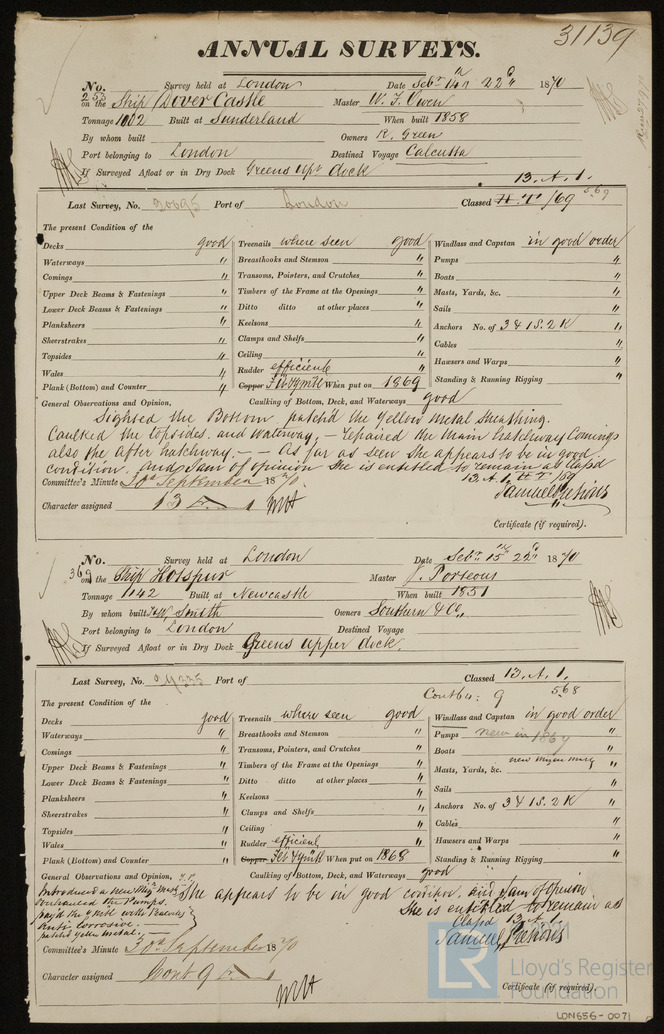 31139
ANNUAL SURVEYS.
No. 253 Survey held at London Date Sebr 14th 22d 1870
on the Ship Dover Castle Master W. T. Owen
Tonnage 1002 Built at Sunderland When built 1858
By whom built Owners R. Green
Port belonging to London Destined Voyage Calcutta
If Surveyed Afloat or in Dry Dock Greens upr dock
13. A. 1.
Last Survey, No. 30695 Port of London Classed H. T /69 569
The present Condition of the
Decks good Treenails where seen good Windlass and Capstan in good order
Waterways " Breasthooks and Stemson " Pumps "
Comings " Transoms, Pointers, and Crutches " Boats "
Upper Deck Beams & Fastenings " Timbers of the Frame at the Openings " Masts, Yards, &c. "
Lower Deck Beams & Fastenings " Ditto ditto at other places " Sails "
Planksheers " Keelsons " Anchors No. of 3 & 1S. 2K "
Sheerstrakes " Clamps and Shelfs " Cables "
Topsides " Ceiling " Hawsers and Warps "
Wales " Rudder efficient "
Plank (Bottom) and Counter " Copper When put on 1869 Standing & Running Rigging "
General Observations and Opinion, Caulking of Bottom, Deck, and Waterways good
Sighted the Bottom patch'd the yellow metal sheathing.
Caulked the topsides and waterway, – repaired the main hatchway Comings
also the After hatchway. – – As far as seen she appears to be in good
condition. and I am of opinion she is entitled to remain as Class'd
13. A. 1. H T /69
Committee's Minute 30th September 1870.
Samuel Pretious
Character assigned 13 A 1
Certificate (if required).
No. 369 Survey held at London Date Sebr 15th 22d 1870
on the Ship Hotspur Master J. Porteous
Tonnage 1142 Built at Newcastle When built 1851
By whom built T&W Smith Owners Southern & Co.
Port belonging to London Destined Voyage
If Surveyed Afloat or in Dry Dock Greens upper dock.
Last Survey, No. Port of Classed 13. A. 1.
Contd 9 568
The present Condition of the
Decks good Treenails where seen good Windlass and Capstan in good order
Waterways " Breasthooks and Stemson " Pumps new in 1869
Comings " Transoms, Pointers, and Crutches " Boats "
Upper Deck Beams & Fastenings " Timbers of the Frame at the Openings " Masts, Yards, &c. new mizen mast "
Lower Deck Beams & Fastenings " Ditto ditto at other places " Sails "
Planksheers " Keelsons " Anchors No. of 3 & 1S. 2K "
Sheerstrakes " Clamps and Shelfs " Cables "
Topsides " Ceiling "
Wales " Rudder efficient " Hawsers and Warps "
Plank (Bottom) and Counter " Copper When put on 1868 Standing & Running Rigging "
General Observations and Opinion, Caulking of Bottom, Deck, and Waterways good
Introduced a new Mizn Mast
overhauled the Pumps.
She appears to be in good condition. and I am of opinion
pay'd the
Anti Corrosive.
She is entitled to remain as
patch'd yellow metal. –
Class'd 13. A. 1.
Samuel Pretious
Committee's Minute 30th September 1870
Character assigned Cont 9
Certificate (if required).
LR
Lloyd's Register
Foundation
LDN656-0071